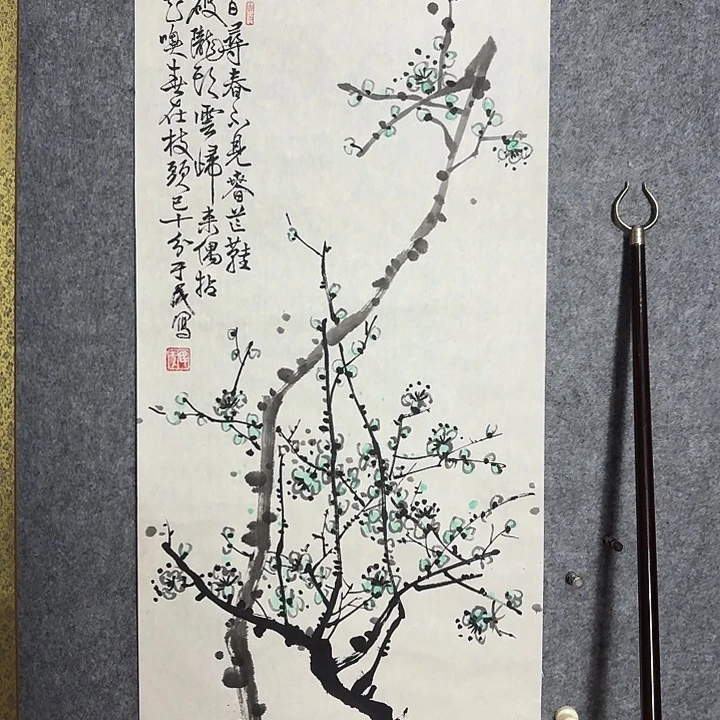 日尋春不見春芒鞋
破隴頭雲歸来偶拈
花嗅春在枝頭已十分寫